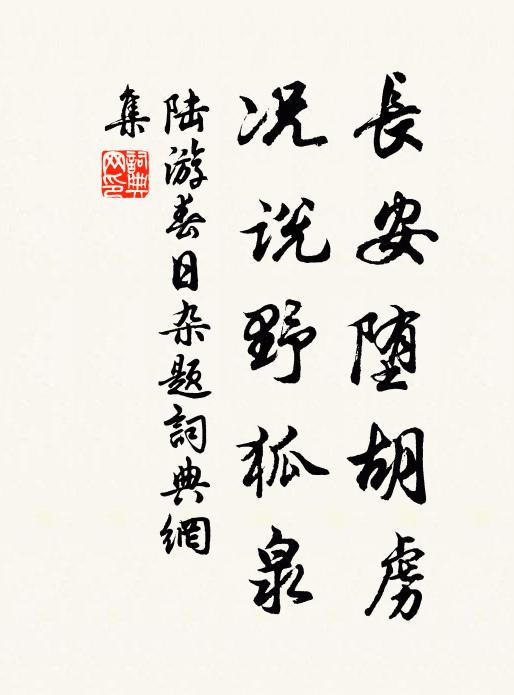 長安堕胡虜
况说野狐泉
陆游春日杂题詞典網
集
詞典
网印